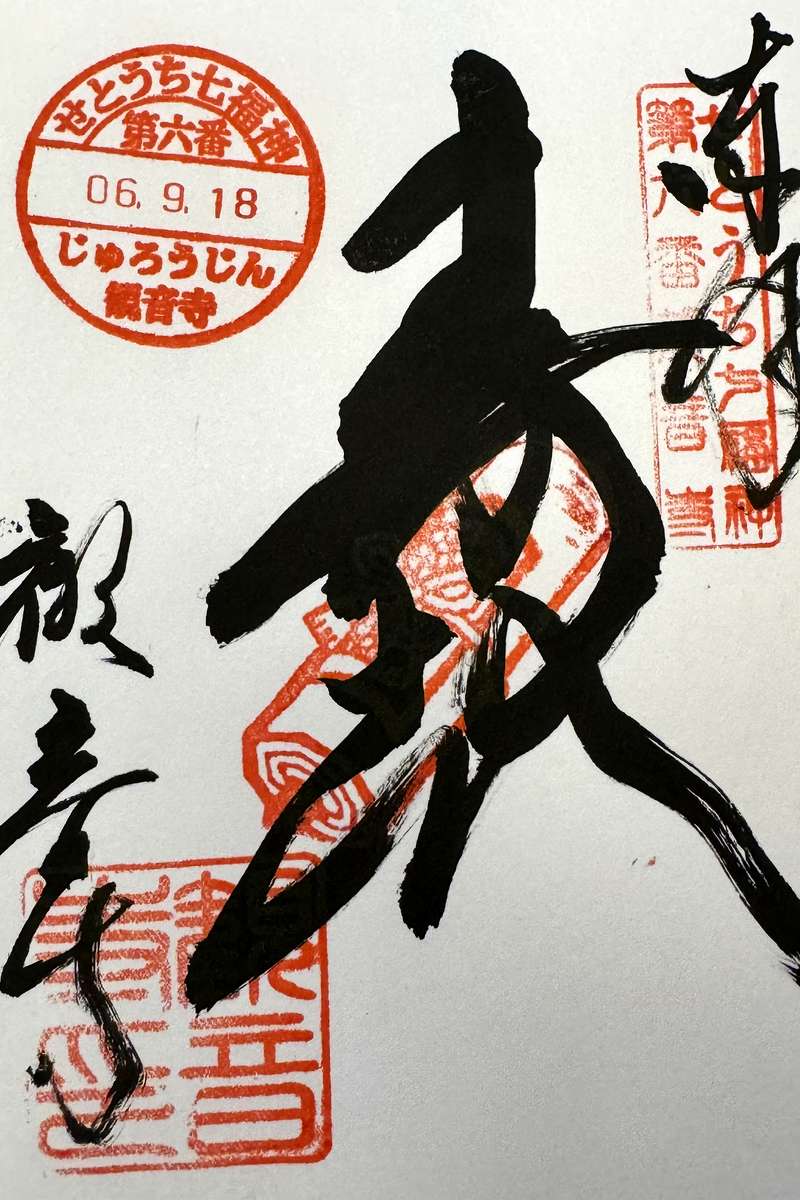 せとうち七福神
第六番
06.9.18
じゅろうじん
観音寺
奉拝
せとうち七福神
第六番観音寺
寿
観音寺